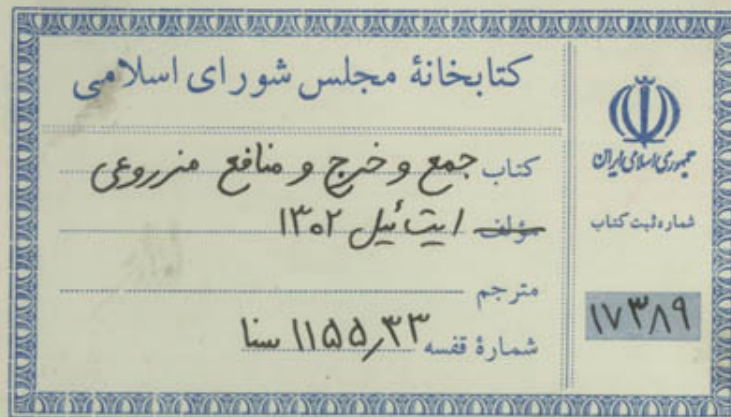 کتابخانهٔ مجلس شورای اسلامی
کتاب جمع و خرج و منافع مزروعی
مؤلف ایت ئیل ۱۳۰۲
مترجم
شماره قفسه ۱۱۵۵٫۳۳ سنا
جمهوری اسلامی ایران
شماره ثبت کتاب
۱۷۳۸۹